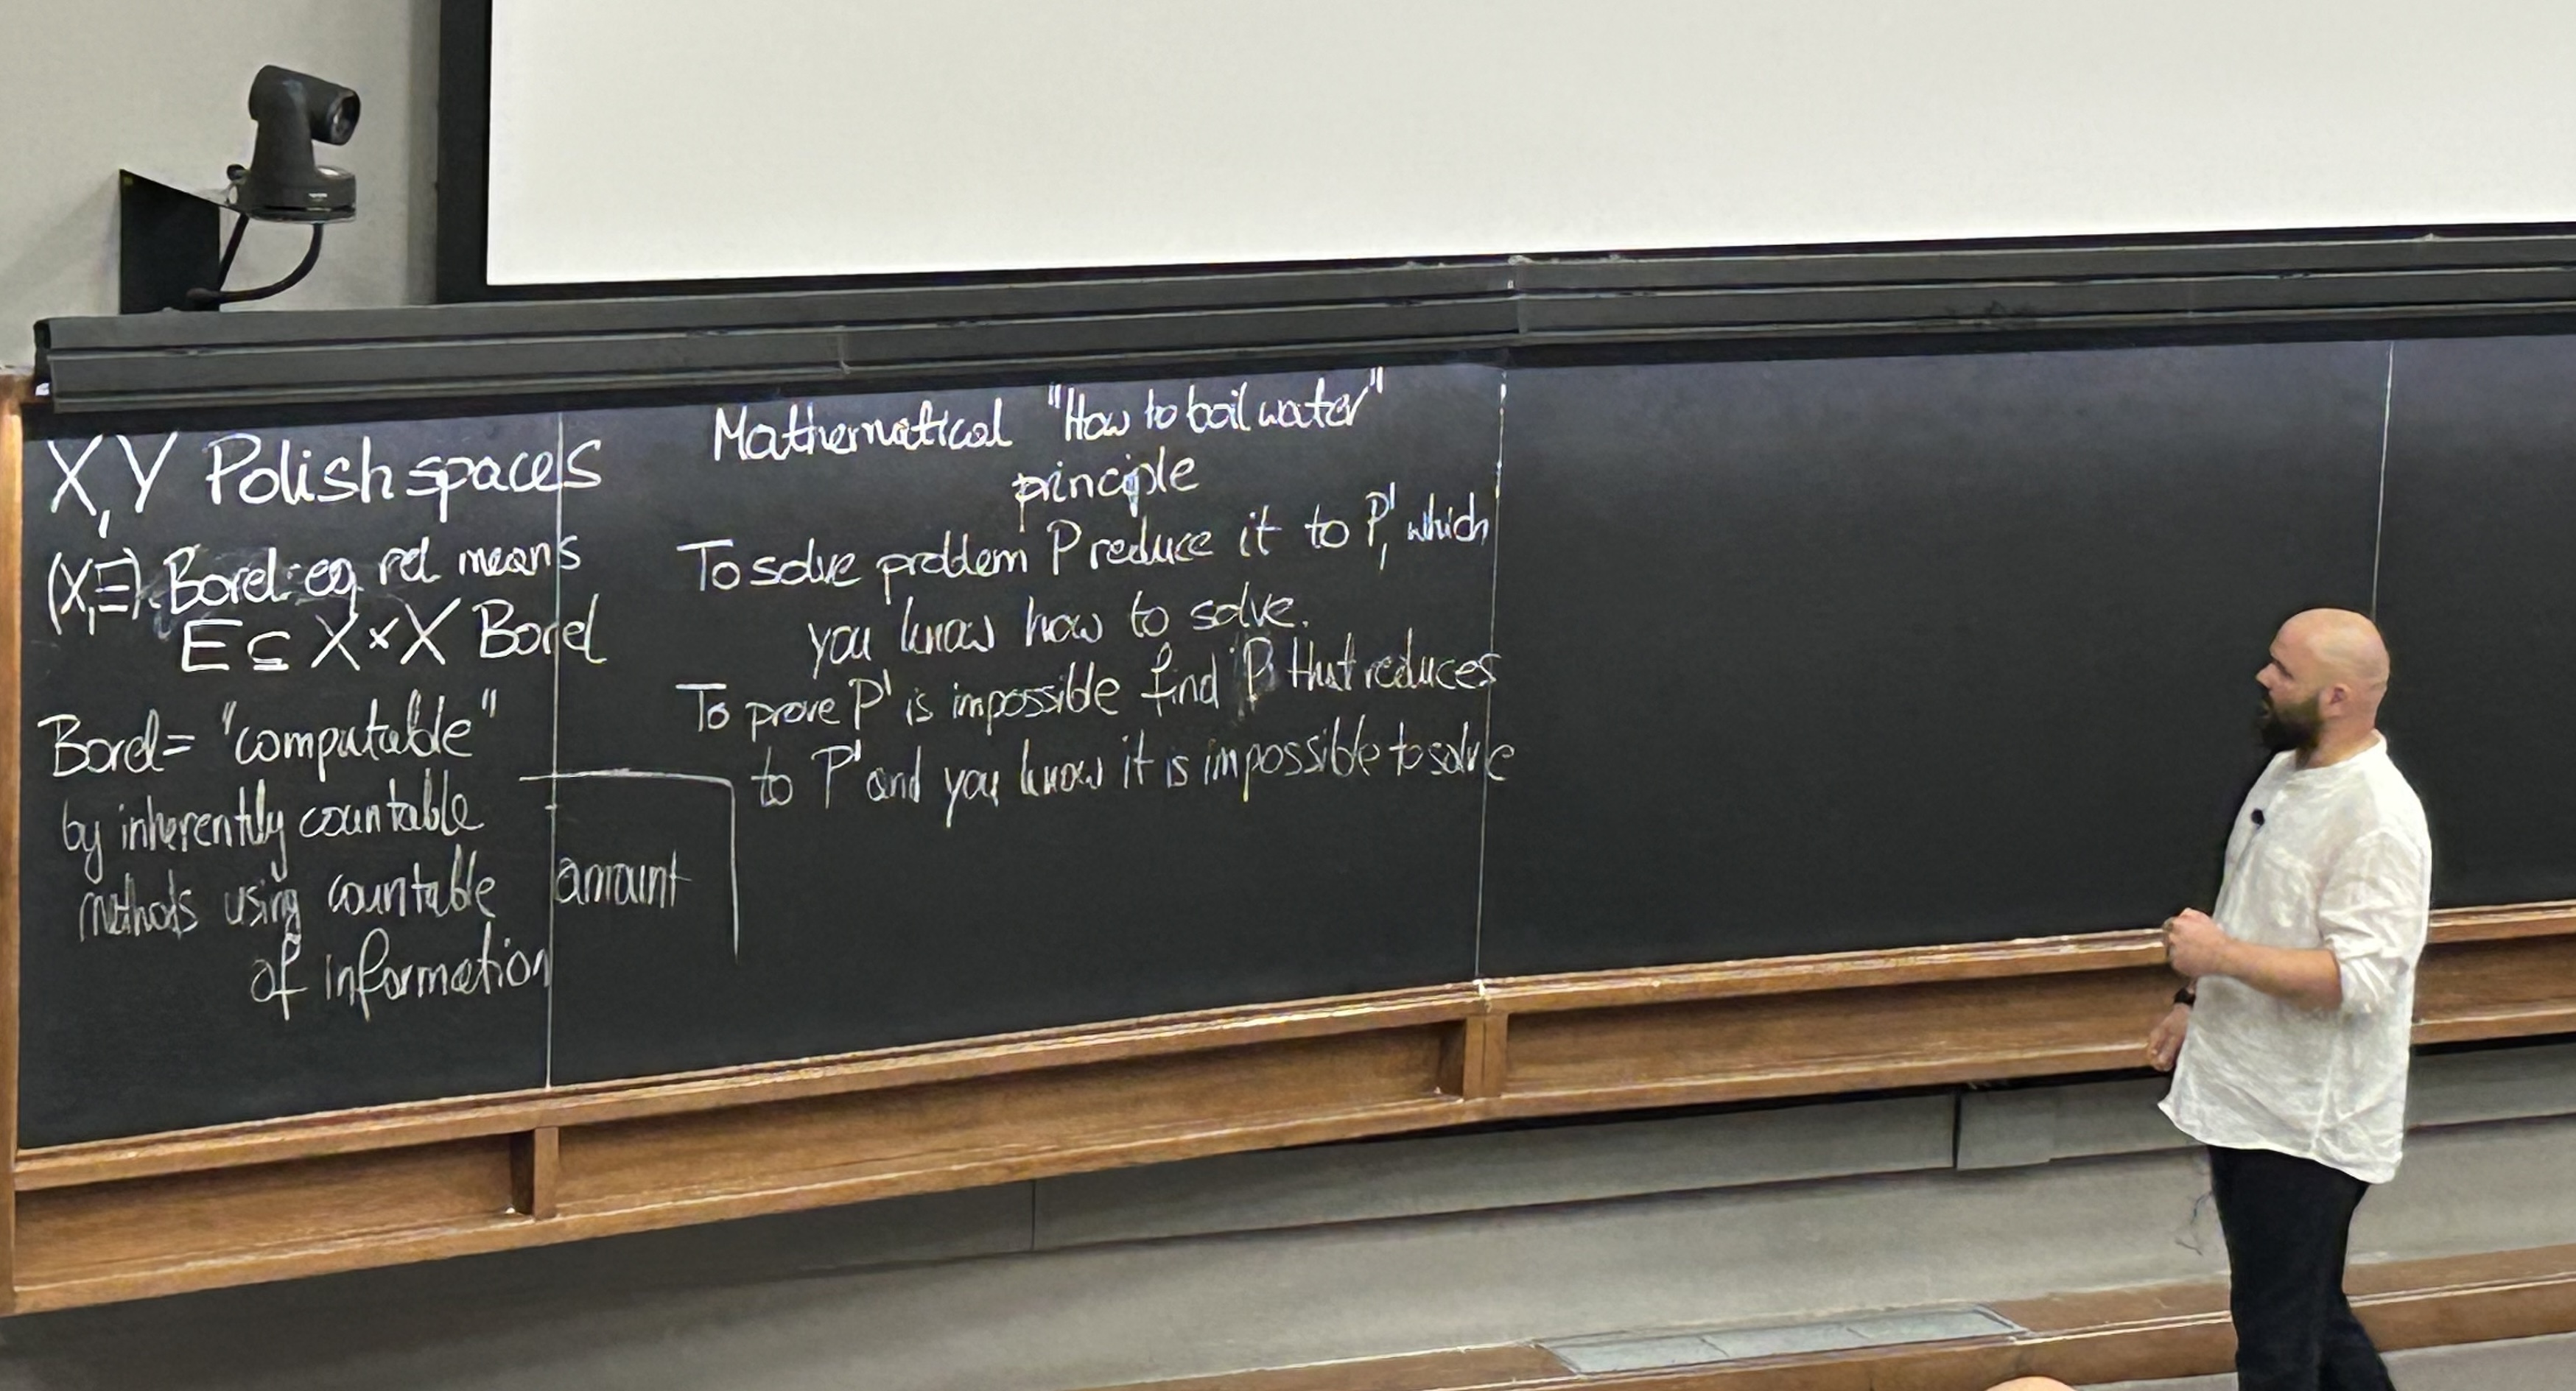 X, Y Polish spaces
(X,E). Borel eq rel means
E ⊆ X × X Borel
Borel = "computable"
by inherently countable
methods using countable amount
of information
Mathematical "How to boil water"
principle
To solve problem P reduce it to P', which
you know how to solve.
To prove P' is impossible find P that reduces
to P' and you know it is impossible to solve